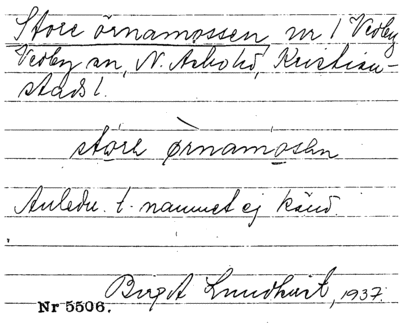 Store örnamossen nr 1 Vedby
Vedby sn, N. Åsbo hd, Kristian-
stads l.
store ørnamosen
Anledn. t. namnet ej känd.
Birgit Lundkvist, 1937.
Nr 5506.